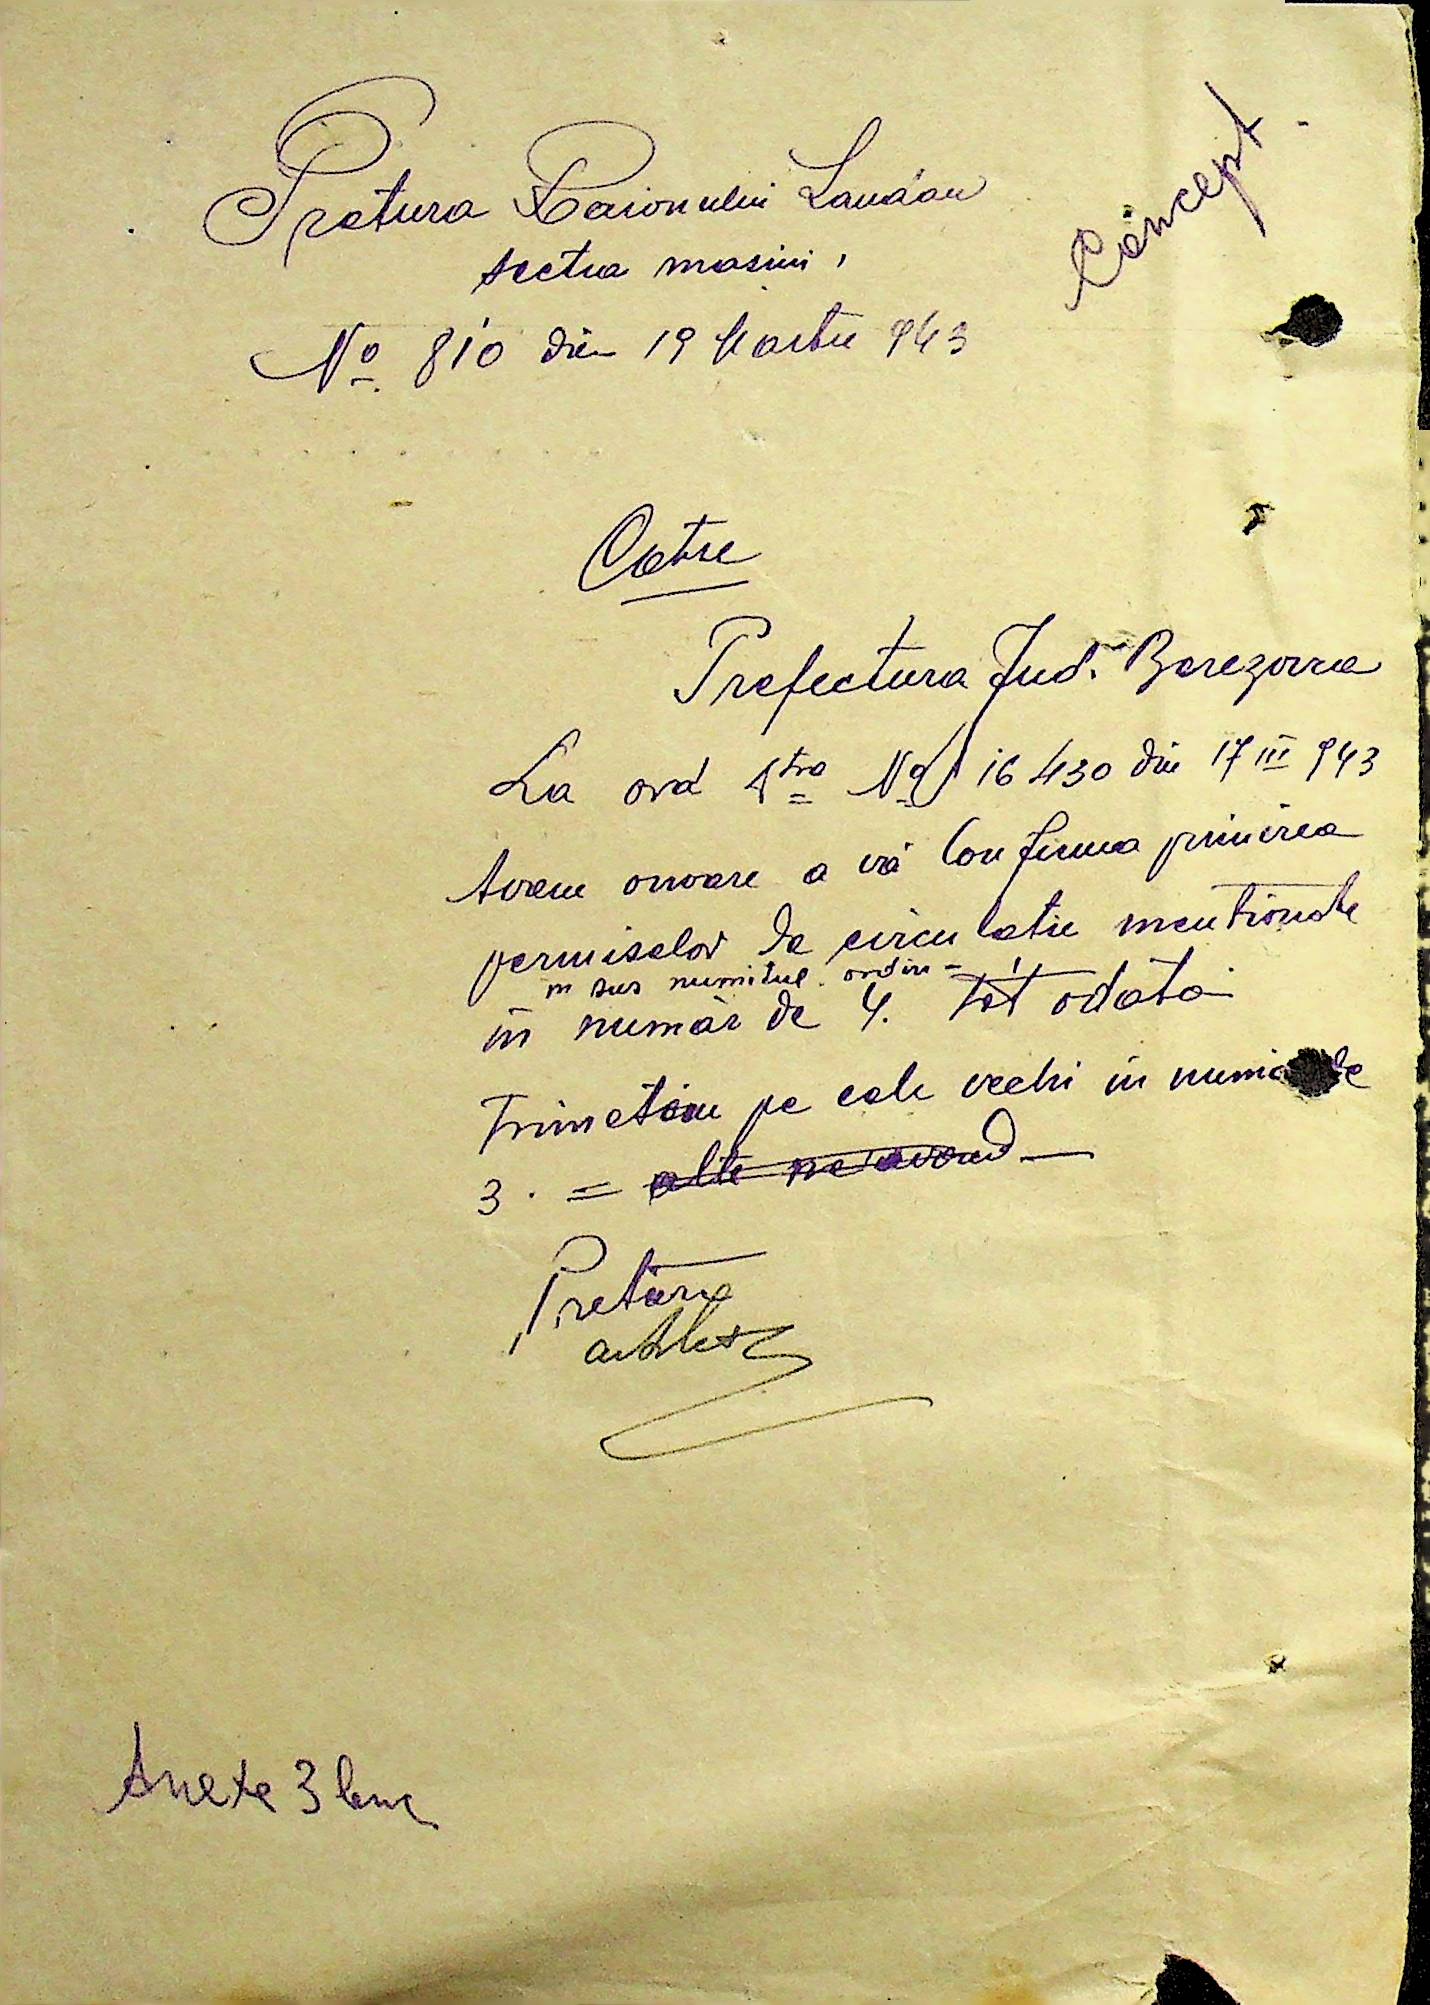 Concept
Pretura Raionului Landau
sectia masini,
Nº 810 din 19 Martie 943
Catre
Prefectura Jud. Berezovca
La ord Dtra Nº 16430 din 17 III 943
Avem onoare a vă Confirma primirea
permiselor de circulatie mentionate
in sus numitul ordin -
în număr de 4. Tot odată
Trimetem pe cele vechi in numar de
3. = alte ne avand —
Pretor
Anexe 3 buc